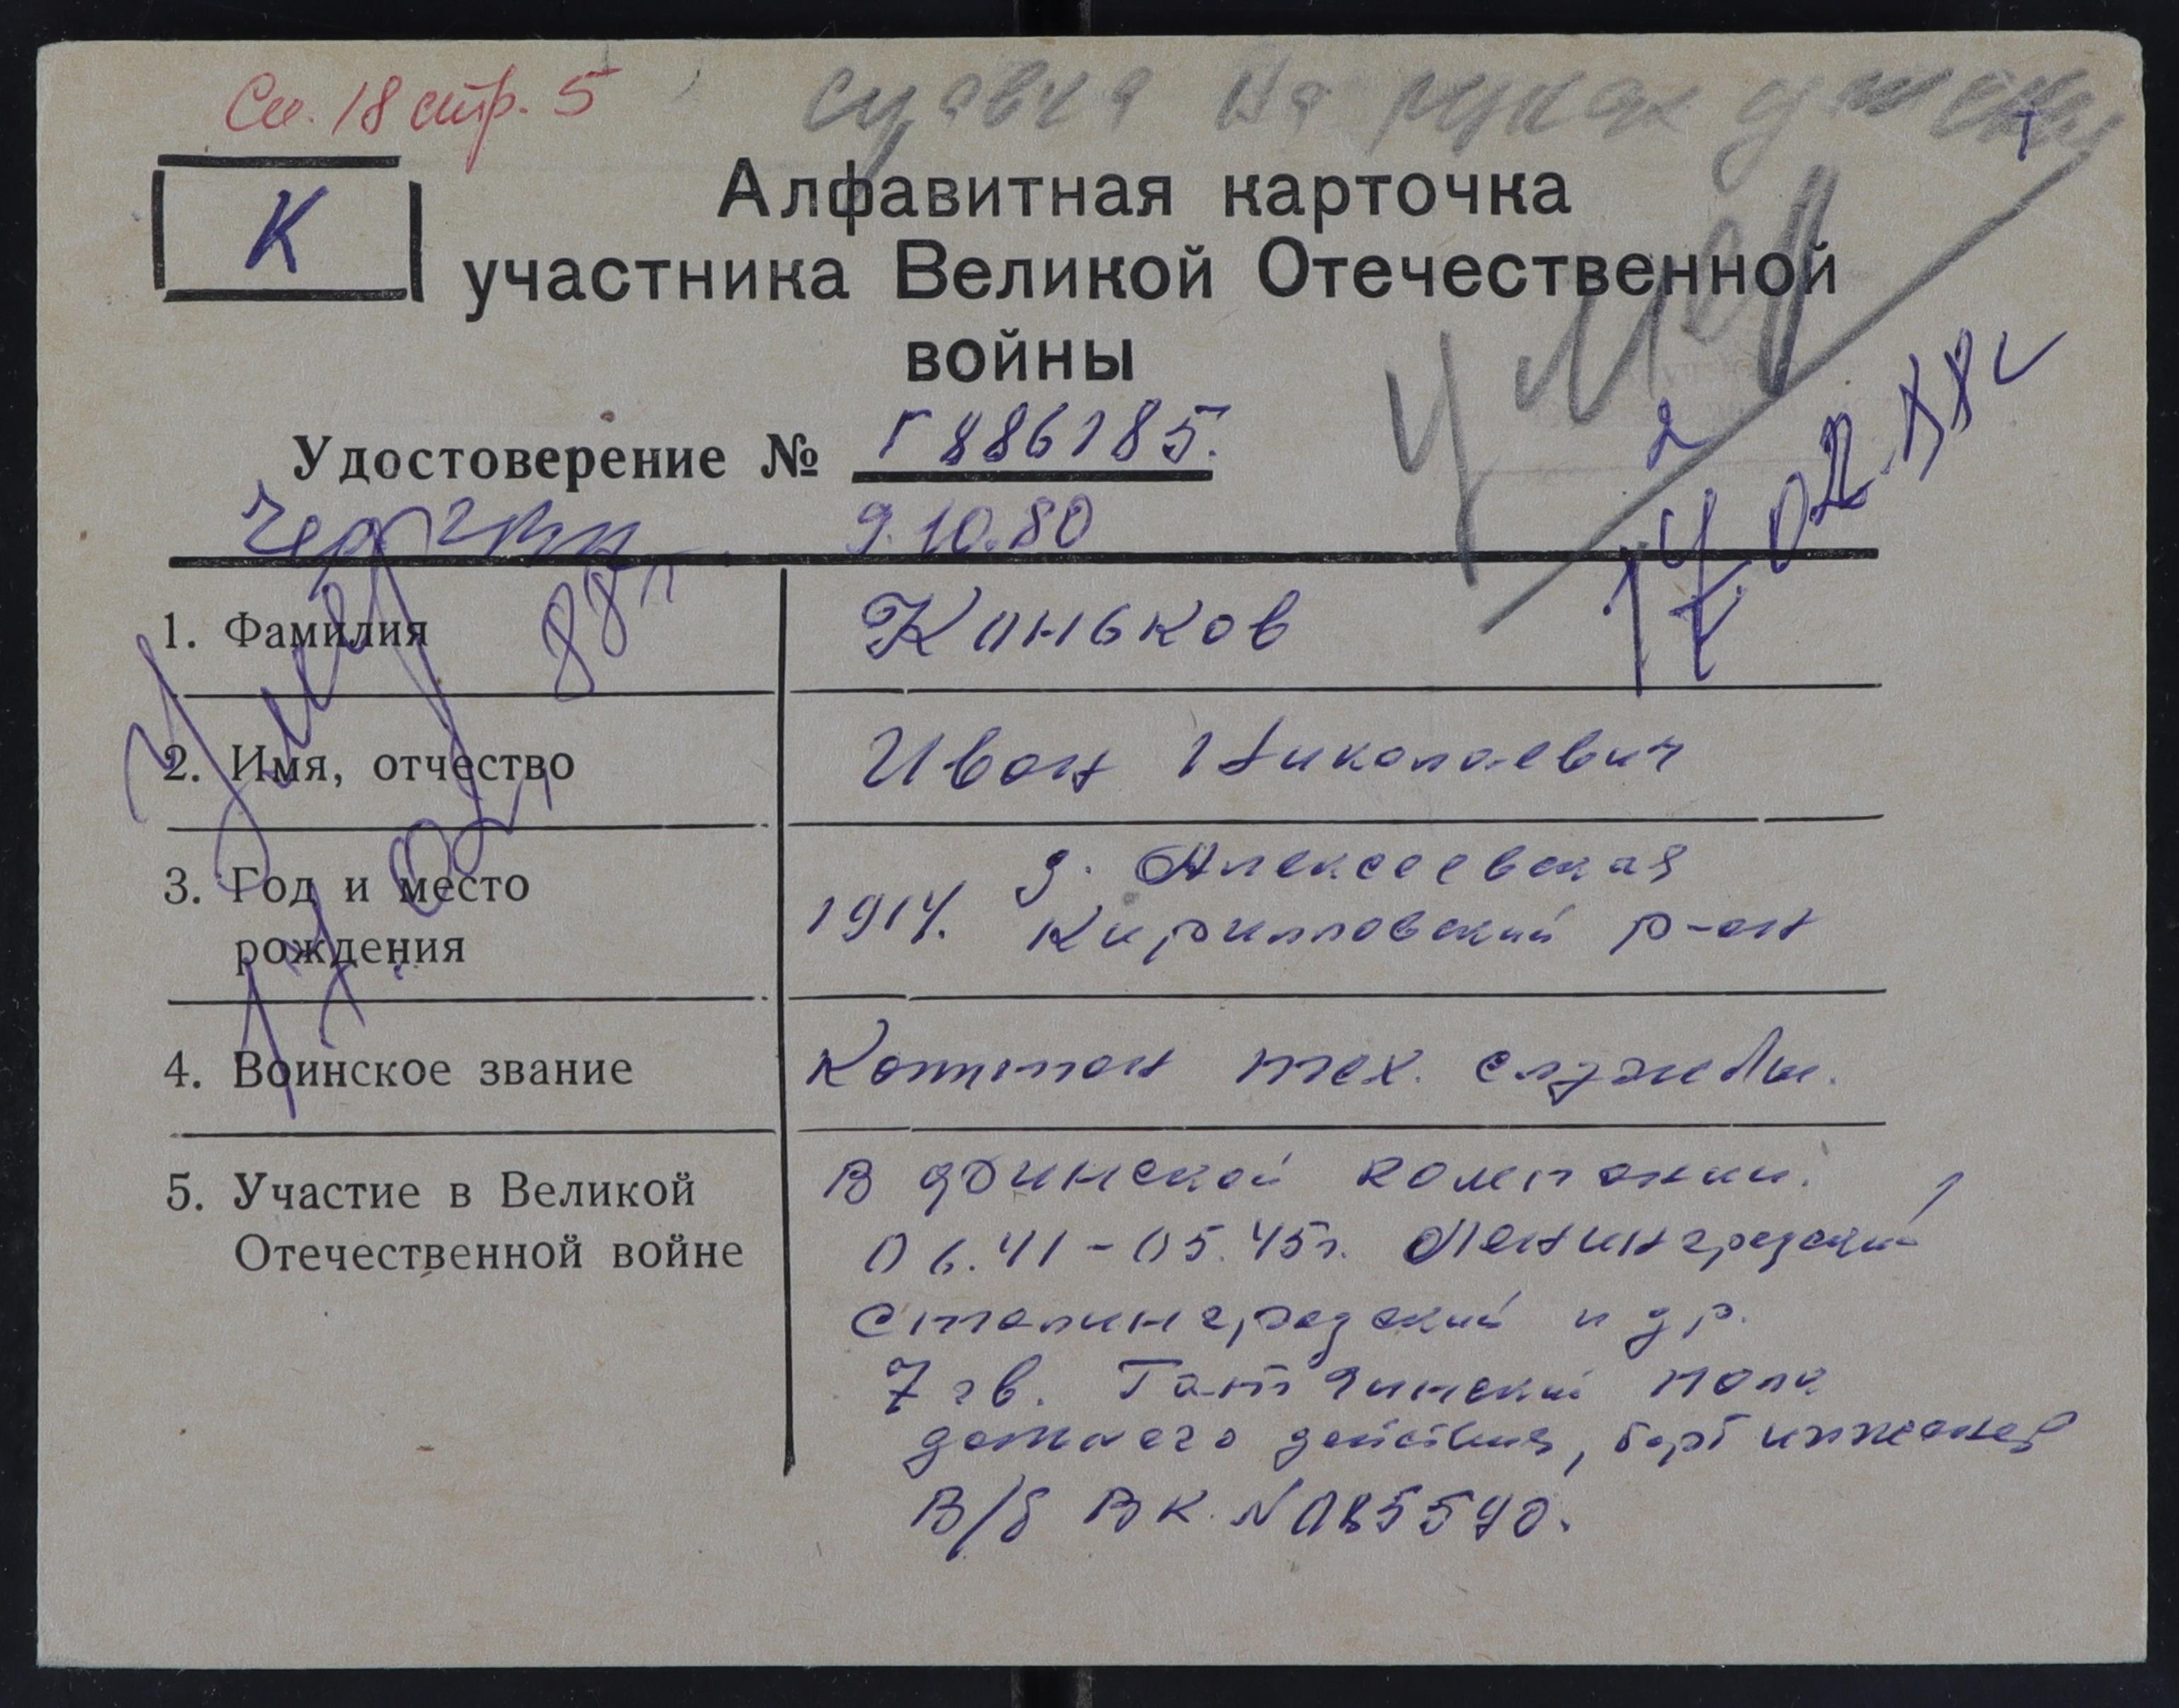 См. 18 стр. 5
на руках у жены
К
Алфавитная карточка
участника Великой Отечественной
войны
умер
Удостоверение № Г 886185.
9.10.80
17.02.88г
Умер 17.02. 88г
1. Фамилия Каньков
2. Имя, отчество Иван Николаевич
3. Год и место рождения 1914. д. Алексеевская
Кирилловский р-он
4. Воинское звание Капитан тех. службы.
5. Участие в Великой Отечественной войне В финской компании.
06.41-05.45г. Ленинградский
Сталинградский и др.
7 гв. Гатчинский полк
дальнего действия, борт инженер
В/б ВК. №085590.